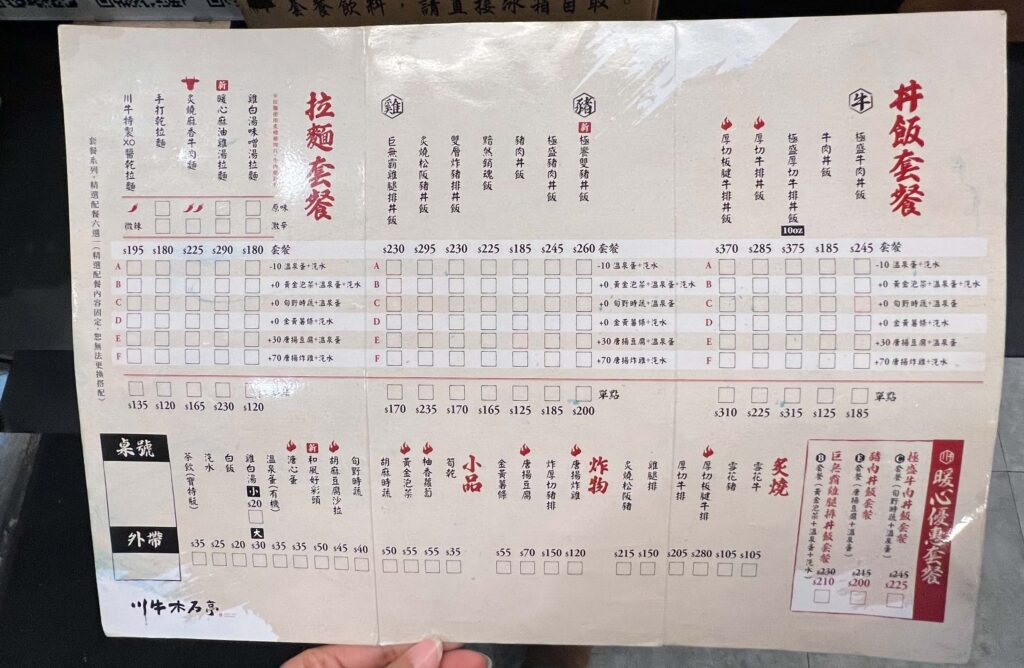 套餐飲料，請直接
丼飯套餐
牛
極盛牛肉丼飯
牛肉丼飯
極盛厚切牛排丼飯
10oz
厚切牛排丼飯
厚切板腱牛排丼飯
$245
$185
$375
$285
$370
套餐
A -10 溫泉蛋+汽水
B +0 黃金泡菜+溫泉蛋+汽水
C +0 旬野時蔬+溫泉蛋
D +0 金黃薯條+汽水
E +30 唐揚豆腐+溫泉蛋
F +70 唐揚炸雞+汽水
單點
$185
$125
$315
$225
$310
豬
新
極饗雙豬丼飯
極盛豬肉丼飯
豬肉丼飯
黯然銷魂飯
雙層炸豬排丼飯
炙燒松阪豬丼飯
雞
巨無霸雞腿排丼飯
$260
$245
$185
$225
$230
$295
$230
套餐
A -10 溫泉蛋+汽水
B +0 黃金泡菜+溫泉蛋+汽水
C +0 旬野時蔬+溫泉蛋
D +0 金黃薯條+汽水
E +30 唐揚豆腐+溫泉蛋
F +70 唐揚炸雞+汽水
單點
$200
$185
$125
$165
$170
$235
$170
拉麵套餐
雞白湯味噌湯拉麵
新
暖心麻油雞湯拉麵
炙燒麻香牛肉麵
手打乾拉麵
川牛特製XO醬乾拉麵
原味
激辛
微辣
$180
$290
$225
$180
$195
套餐
A -10 溫泉蛋+汽水
B +0 黃金泡菜+溫泉蛋+汽水
C +0 旬野時蔬+溫泉蛋
D +0 金黃薯條+汽水
E +30 唐揚豆腐+溫泉蛋
F +70 唐揚炸雞+汽水
$120
$230
$165
$120
$135
套餐系列，精選配餐六選一(精選配餐內容固定，恕無法更換搭配)
暖心優惠套餐
極盛牛肉丼飯套餐
C 套餐(旬野時蔬+溫泉蛋)
$245
$225
豬肉丼飯套餐
E 套餐(唐揚豆腐+溫泉蛋)
$215
$200
巨無霸雞腿排丼飯套餐
B 套餐(黃金泡菜+溫泉蛋+汽水)
$230
$210
炙燒
雪花牛
$105
雪花豬
$105
厚切板腱牛排
$280
厚切牛排
$205
雞腿排
$150
炙燒松阪豬
$215
炸物
唐揚炸雞
$120
炸厚切豬排
$150
唐揚豆腐
$70
金黃薯條
$55
小品
筍乾
$35
柚香蘿蔔
$55
黃金泡菜
$55
胡麻時蔬
$50
旬野時蔬
$40
胡麻豆腐沙拉
$45
新
和風好彩頭
$50
溏心蛋
$35
溫泉蛋(有機)
$35
雞白湯
小
$20
大
$30
白飯
$20
汽水
$25
茶飲(寶特瓶)
$35
桌號
外帶
川牛木石亭